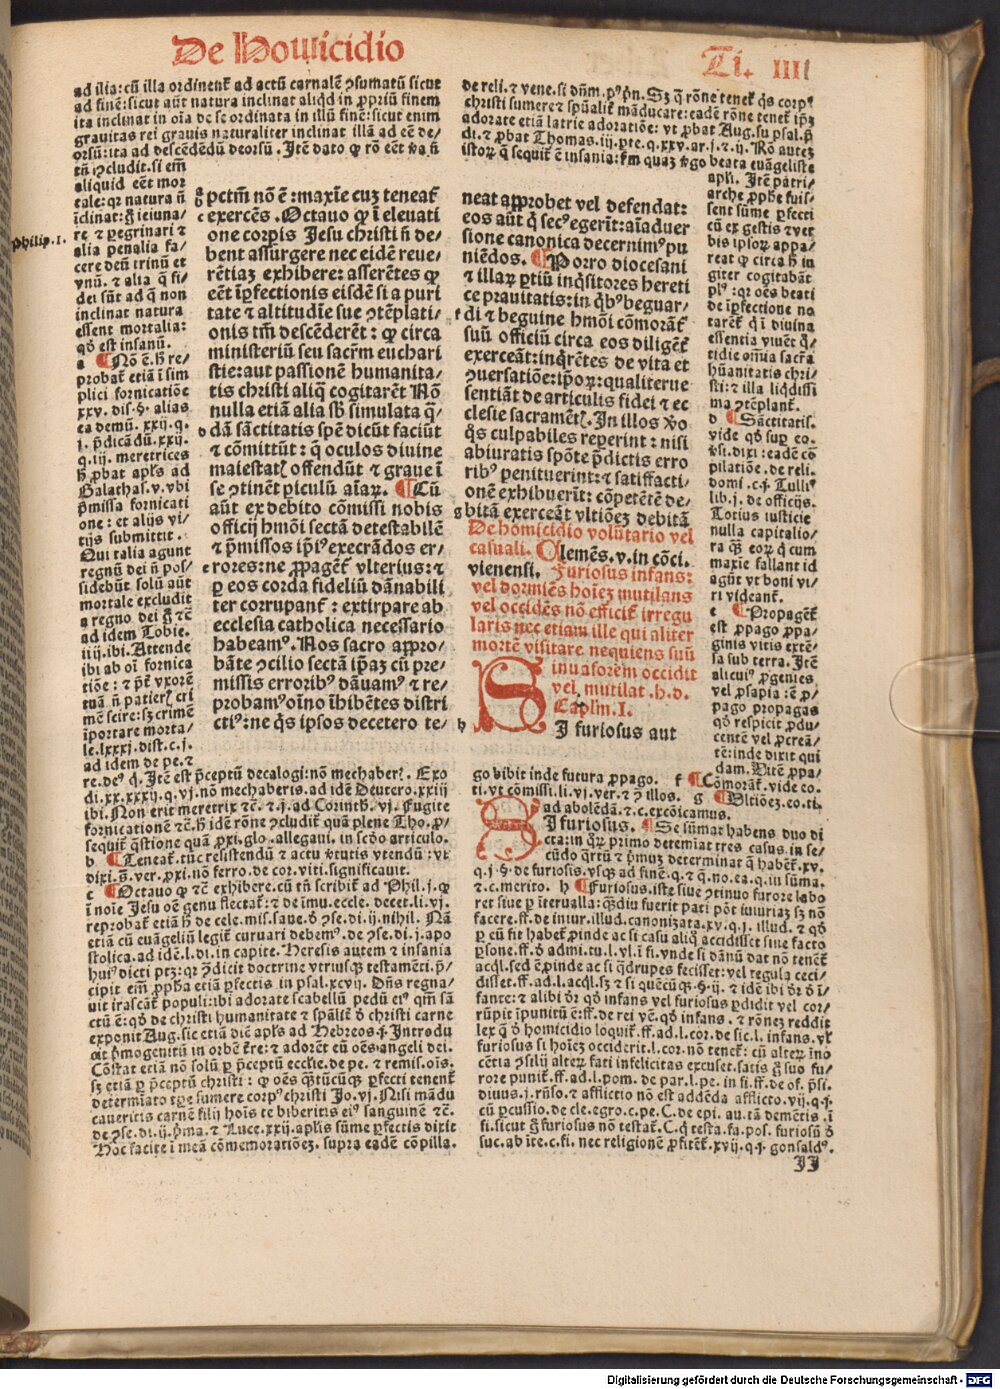 De Homicidio
Ti. IIII
ad illa: cū illa ordinent̄ ad actū carnalē ꝯsumatū sicut
ad finē: sicut aūt natura inclinat aliqd in ꝓpriū finem
ita inclinat in oīa de se ordinata in illū finē: sicut enim
grauitas rei grauis naturaliter inclinat illā ad eē de/
orsū: ita ad descēdēdū deorsū. Itē dato ꝙ rō eēt
tn̄ ꝯcludit. si em̄
aliquid eēt mor
tale: qꝛ natura n̄
īclinat: g̊ ieiuna/
re ⁊ ꝑegrinari ⁊
alia penalia fa/
cere deū trinū et
vnū. ⁊ alia q̄ fi/
dei sūt ad q̄ non
inclinat natura
essent mortalia:
qd̄ est insanū.
Philip. 1.
a ¶ Nō ē. h̄ re/
probat̄ etiā ī sim
plici fornicatiōe
xxv. dis. §. alias
ea demū. xxij. q.
j. p̄dicādū. xxij.
q. iij. meretrices
h̄ probat apl̄s ad
Galathas. v. vbi
p̄missa fornicati
one: et alijs vi/
tijs submittit.
Qui talia agunt
regnū dei n̄ pos/
sidebūt solū aūt
mortale excludit
a regno dei g̊ ⁊c̄
ad idem Tobie.
iiij. ibi. Attende
ibi ab oī fornica
tiōe: ⁊ p̄t̄ vxorē
tuā n̄ patier̄ cri
mē scire: sꝫ crimē
īportare morta/
le. lxxxj. dist. c. j.
ad idem de pe. ⁊
re. deꝰ q. Itē est p̄ceptū decalogi: nō mechaber̄. Exo
di. xx. xxxij. q. vj. nō mechaberis. ad idē Deutero. xxiij
ibi. Non erit meretrix ⁊c̄. ⁊. j. ad Corinth̄. vj. Fugite
fornicationē ⁊c̄. h̄ idē rōne ꝯcludit̄ quā plene Tho. ꝓ/
sequit̄ q̄stione quā ꝓxi. glo. allegaui. in scd̄o articulo.
b ¶ Teneat̄. tūc resistendū ⁊ actu v̄tutis vtendū: vt
dixi. s̄. ver. ꝓxi. nō ferro. de cor. viti. significauit.
c ¶ Octauo ꝙ ⁊c̄ exhibere. cū tn̄ scribit̄ ad Phil. j. ꝙ
ī noīe Jesu oē genu flectat̄: ⁊ de īmu. eccle. decet. li. vj.
reprobat̄ etiā h̄ de cele. mis. sane. ⁊ de ꝯse. di. ij. nihil. Nā
etiā cū euāgeliū legit̄ curuari debemꝰ. de ꝯse. di. j. apo
stolica. ad idē. l. di. in capite. Heresis autem ⁊ insania
huiꝰ dicti ptꝫ: qꝛ p̄dicit doctrine vtriusqꝫ testamēti. p̄/
cipit em̄ ꝓpħa etiā ꝑfectis. in psal. xcvij. Dn̄s regna/
uit irascāt̄ populi: ibi adorate scabellū pedū eiꝰ qm̄ sā
ctū ē: qd̄ de christi humanitate ⁊ sp̄alit̄ ⁊ christi carne
exponit Aug. sic etiā dic̄ apl̄s ad Hebreos. j. Introdu
cit p̄mogenitū in orbē t̄re: ⁊ adorēt eū oēs angeli dei.
Cōstat etiā nō solū ꝑ p̄ceptū eccl̄ie. de pe. ⁊ remis. oīs.
sꝫ etiā ꝑ p̄ceptū christi: ꝙ oēs q̄tūcūqꝫ ꝑfecti tenent̄
determīato tp̄e sumere corpꝰ christi Jo. vj. Nisi mādu
caueritis carnē filij hoīs ⁊e biberitis eiꝰ sanguinē ⁊c̄.
de ꝯse. di. ij. p̄ma. ⁊ Luce. xxij. apl̄is sūme ꝑfectis dixit
Hoc facite ī meā cōmemorationeꝫ. supra eadē cōpilla.
a pctm̄ nō ē: maxīe cuꝫ teneat̄
exercēs. Octauo ꝙ ī eleuati
one corpis Jesu christi n̄ de/
bent assurgere nec eidē reue/
rētiaꝫ exhibere: asserētes ꝙ
eēt īꝑfectionis eisdē si a puri
tate ⁊ altitudīe sue ꝯtēplati/
onis tm̄ descēderēt: ꝙ circa
ministeriū seu sacr̄m euchari
stie: aut passionē humanita/
tis christi aliq̄ cogitarēt Nō
nulla etiā alia sb̄ simulata q̄/
dā sāctitatis spē dicūt faciūt
⁊ cōmittūt: q̄ oculos diuine
maiestat̄ offendūt ⁊ graue ī
se ꝯtinēt ꝑiculū aīaꝝ. ¶ Cū
aūt ex debito cōmissi nobis
officij hmōi sectā detestabilē
⁊ p̄missos ip̄iꝰ execrādos er/
rores: ne ꝓpagēt̄ vlterius: ⁊
ꝑ eos corda fideliū dānabili
ter corrupant̄: extirpare ab
ecclesia catholica necessario
habeamꝰ. Nos sacro aꝓpro/
bāte ꝯcilio sectā ip̄aꝫ cū pre/
missis erroribꝰ dānamꝰ ⁊ re/
probamꝰ oīno īhibētes distri
ctiꝰ: ne q̄s ipsos decetero te/
de reli. ⁊ vene. si dn̄m. pꝰ pn̄. Sꝫ q̄ rōne tenet̄ q̄s corpꝰ
christi sumere ⁊ sp̄ualit̄ māducare: eadē rōne tenet̄ ip̄ꝫ
adorate etiā latrie adoratiōe: vt ꝓbat Aug. su psal. p̄
di. ⁊ ꝓbat Thomas. iij. ꝑte. q. xxv. ar. j. ⁊. ij. Nō auteꝫ
istoꝝ q̄ sequit̄ ē insania: fm̄ quaꝫ v̄go beata euāgeliste
apl̄i. Itē patri/
arche ꝓphe fuis/
sent sūme ꝑfecti
cū ex gestis ⁊ ver
bis ipsoꝝ appa/
reat ꝙ circa h̄ iu
giter cogitabāt
plꝰ: qꝛ oēs beati
de īꝑfectione no
tarēt̄ q̄ ī diuina
essentia viuēt q̄/
tidie omīa sacr̄a
hūanitatis chri/
sti: ⁊ illa liq̄dissi
ma ꝯtēplant̄.
neat aꝓprobet vel defendat:
eos aūt q̄ secꝰ egerīt: aīaduer
sione canonica decernimꝰ pu
niēdos. ¶ Porro diocesani
⁊ illaꝝ ꝑtiū inq̄sitores hereti
ce prauitatis: in q̄bꝰ beguar/
di ⁊ beguine hmōi cōmorāt̄
suū officiū circa eos diligēt̄
exerceāt: inq̄rētes de vita et
ꝯuersatiōe: ip̄oꝝ: qualiterue
sentiāt de articulis fidei ⁊ ec
clesie sacramēt̄. In illos v̄o
q̄s culpabiles reperint: nisi
abiuratis spōte p̄dictis erro
ribꝰ penituerint: ⁊ satisfacti/
onē exhibuerīt: cōpetētē de/
bitā exerceāt vltiōeꝫ debitā
De homicidio volūtario vel
casuali. Clemēs. v. in cōci.
vienensi. Furiosus infans:
vel dormiēs hoīeꝫ mutilans
vel occidēs nō efficit̄ irregu
laris nec etiam ille qui aliter
mortē visitare nequiens suū
inuasorem occidit
vel mutilat. h. d.
Caplm̄. I.
SI furiosus aut
d ¶ Sāctitatis.
vide qd̄ sup eo.
v̄si. dixi: eadē cō
pilatiōe. de reli.
domi. c. j. Tulliꝰ
lib. j. de officijs.
Totius iusticie
nulla capitalio/
ra q̄ꝫ eoꝝ q̄ cum
maxie fallant id
agūt vt boni vi/
ri videant̄.
e ¶ Propagēt̄
est ꝓpago ꝓpa/
ginis vitis extē/
sa sub terra. Itē
alicuiꝰ ꝓgenies
vel ꝓsapia: ē ꝓ/
pago propagas
qd̄ respicit ꝓdu/
centē vel ꝓcreā/
tē: inde dixit qui
dam. Vitē ꝓpa/
go bibit inde futura ꝓpago. f ¶ Cōmorāt̄. vide co.
ti. vt cōmissi. li. vj. ver. ⁊ ꝯ illos. g ¶ Vltiōeꝫ. eo. ti.
ad abolēdā. ⁊. c. excōicamus.
SI furiosus. ¶ Se sūmat habens duo di
cta: in q̄ꝝ primo determīat tres casus. in se/
cūdo q̄rtū ⁊ p̄muꝫ determinat q̄ habēt̄. xv.
q. j. §. de furiosis. vsqꝫ ad finē. q. ⁊ q̄. no. ea. q. in sūma.
⁊. c. merito. h ¶ Furiosus. iste siue ꝯtinuo furore labo
ret siue ꝑ īterualla: q̄ꝫdiu fuerit pati pōt iniuriaꝫ sꝫ nō
facere. ff. de iniur. illud. canonizata. xv. q. j. illud. ⁊ qd̄
ꝑ eū fit habet̄ ꝓinde ac si casu aliq̄ accidisset siue facto
ꝑsone. ff. ⁊ admi. tu. l. vl. ī fi. vnde si dānū dat nō tenēt̄
acq̄l. sed ē ꝓinde ac si q̄drupes fecisset: vel regula ceci/
disset. ff. ad. l. acq̄l. sꝫ ⁊ si quēcūqꝫ. §. ij. ⁊ idē ibi d̄r ⁊ ī/
fante: ⁊ alibi d̄r qd̄ infans vel furiosus ꝑdidit vel cor/
rūpit īpunitū ē: ff. de rei vē. qd̄ infans. ⁊ rōneꝫ reddit
lex q̄ ⁊ homicidio loquit̄. ff. ad. l. cor. de sic. l. infans. vł
furiosus si hoīeꝫ occiderit. l. cor. nō tenet̄: cū alteꝝ īno
cētia ꝯsilij alteꝝ fati infelicitas excuset. satis g̊ suo fu/
rore punit̄. ff. ad. l. pom. de par. l. pe. in fi. ff. de of. p̄si.
diuus. j. rn̄so. ⁊ afflictio nō est addēda afflicto. vij. q. j.
cū ꝑcussio. de cle. egro. c. pe. C. de epi. au. tā demētis. ī
fi. sicut g̊ furiosus nō testat̄. C. q̄ testa. fa. pos. furiosū ⁊
suc. ab īte. c. fi. nec religionē ꝓfitet̄. xvij. q. j. gonsaldꝰ.
II
Digitalisierung gefördert durch die Deutsche Forschungsgemeinschaft - DFG